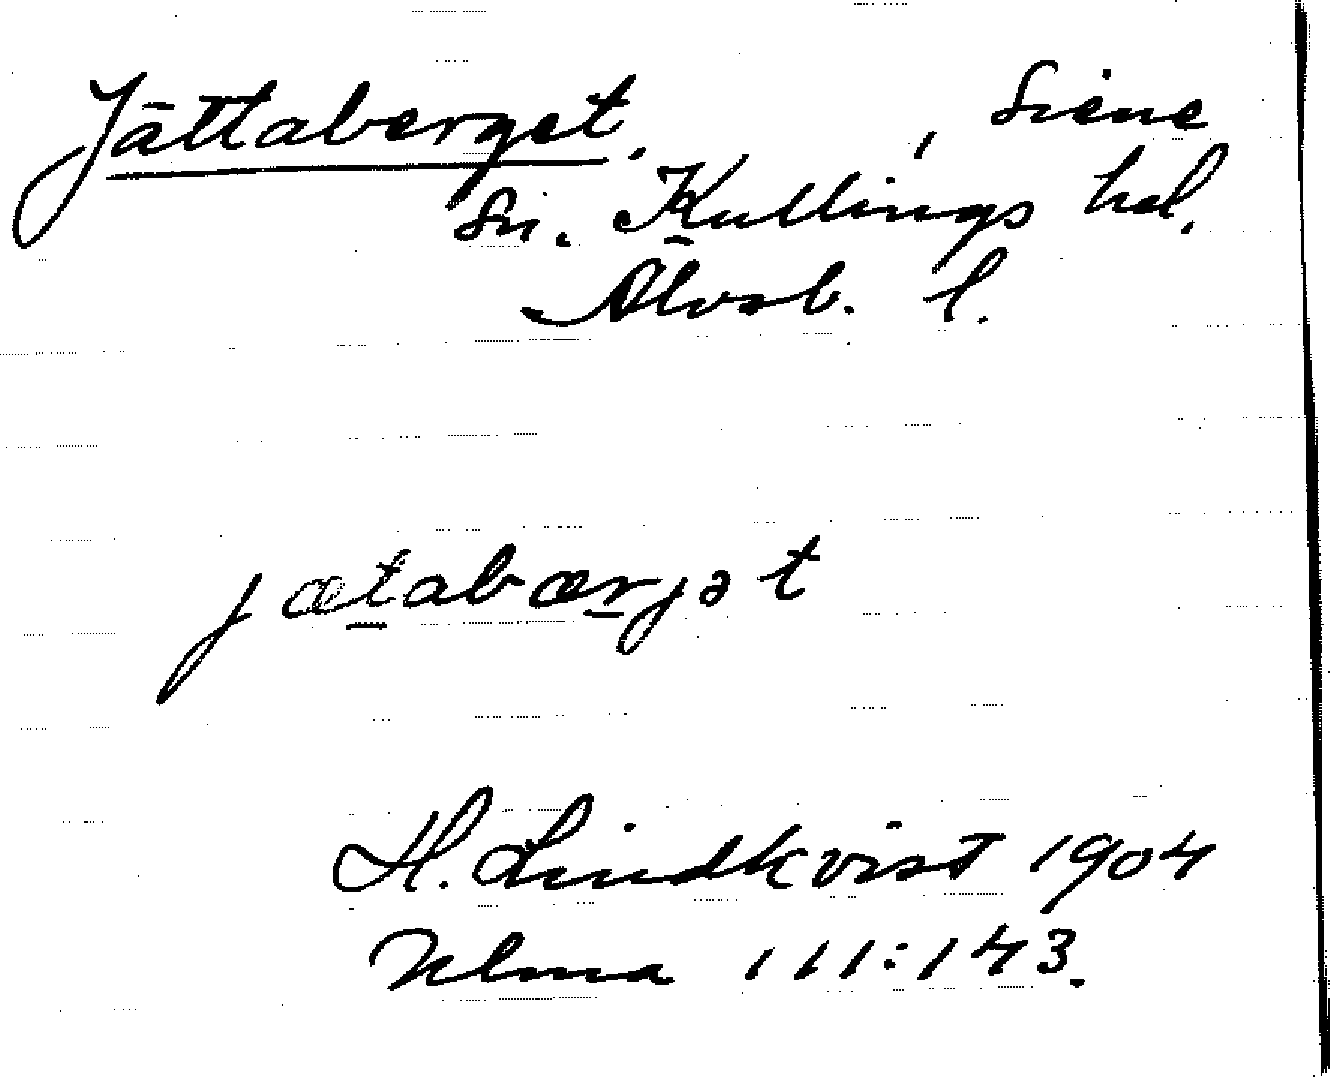 Jättaberget. , Siene
Sn. Kullings hd.
Älvsb. l.
jætabærjət
H. Lindkvist 1904
Ulma 111:143.